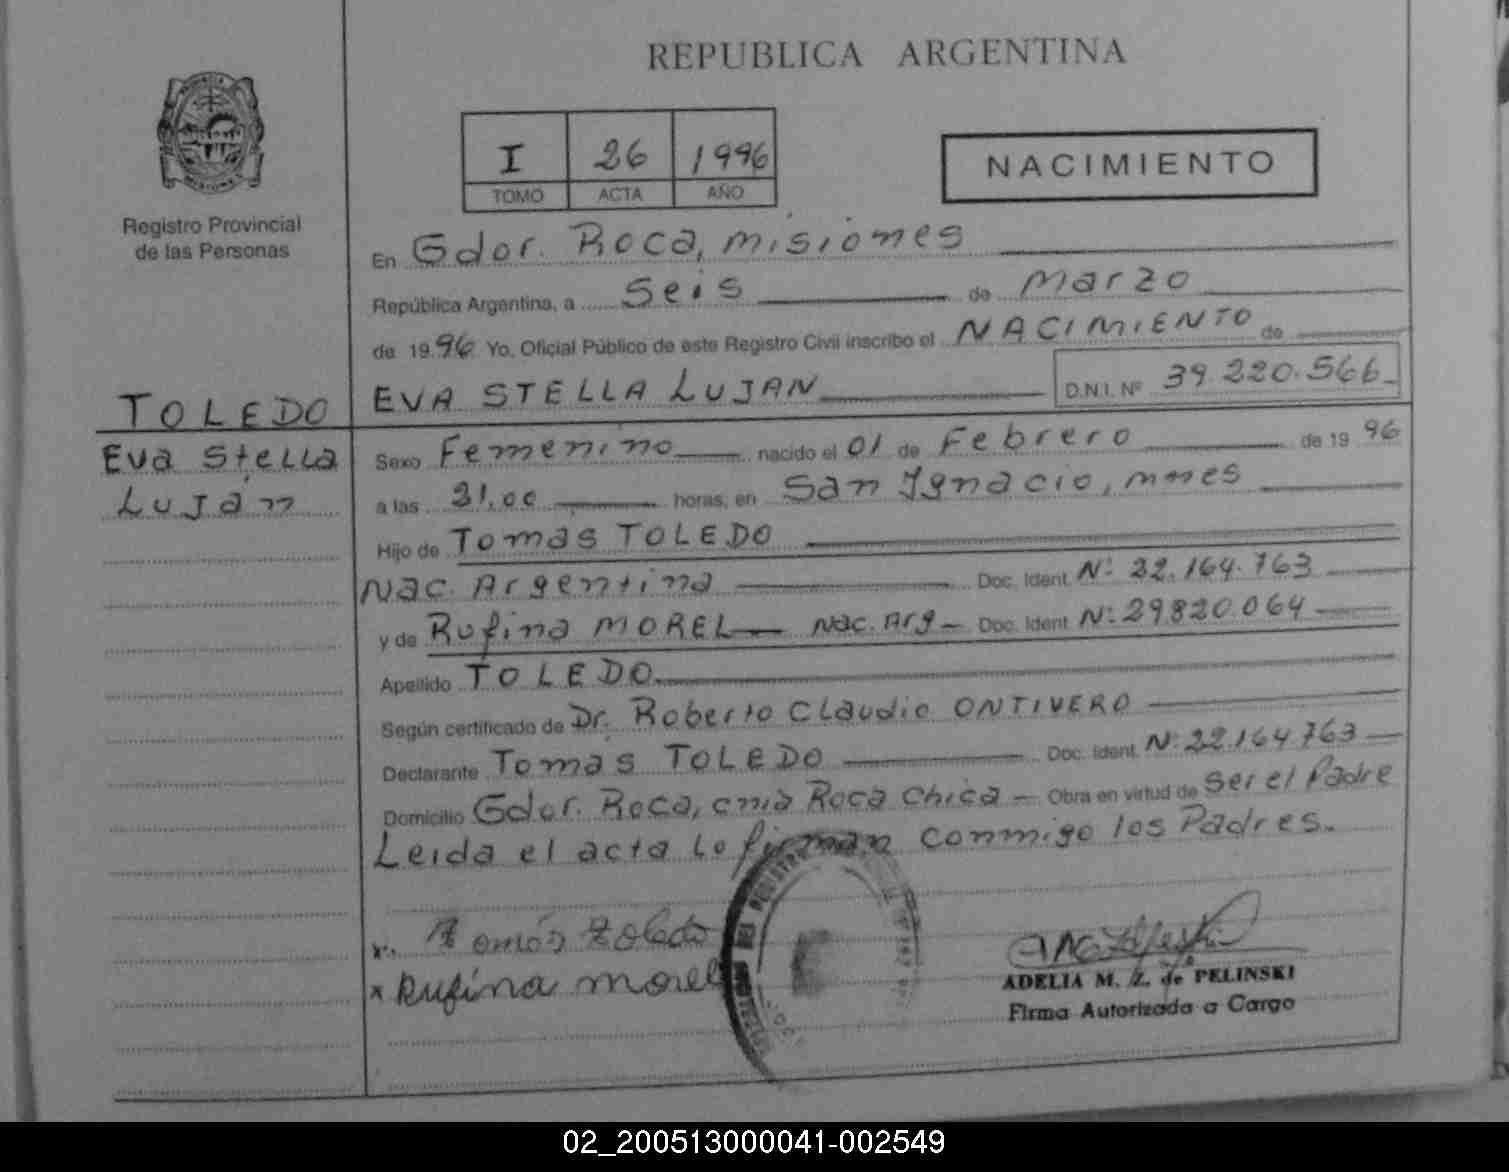 REPUBLICA ARGENTINA
I 26 1996
TOMO ACTA AÑO
NACIMIENTO
Registro Provincial
de las Personas
En Gdor. Roca, misiones
República Argentina, a Seis de marzo
de 1996 Yo, Oficial Público de este Registro Civil inscribo el NACIMIENTO de
EVA STELLA LUJAN D.N.I. Nº 39.220.566
TOLEDO
Eva Stella
Luján
Sexo Femenino nacido el 01 de Febrero de 1996
a las 21,00 horas, en San Ignacio, mnes
Hijo de Tomás TOLEDO
Nac. Argentina Doc. Ident. Nº 22.164.763
y de Rufina MOREL Nac. Arg Doc. Ident. Nº 29820.064
Apellido TOLEDO
Según certificado de Dr. Roberto Claudio ONTIVERO
Declarante Tomás TOLEDO Doc. Ident. Nº 22.164763
Domicilio Gdor. Roca, cnia Roca Chica Obra en virtud de Ser el Padre
Leida el acta lo firman conmigo los Padres.
x Tomás Toledo
x Rufina morel
ADELIA M. Z. de PELINSKI
Firma Autorizada a Cargo
02_200513000041-002549